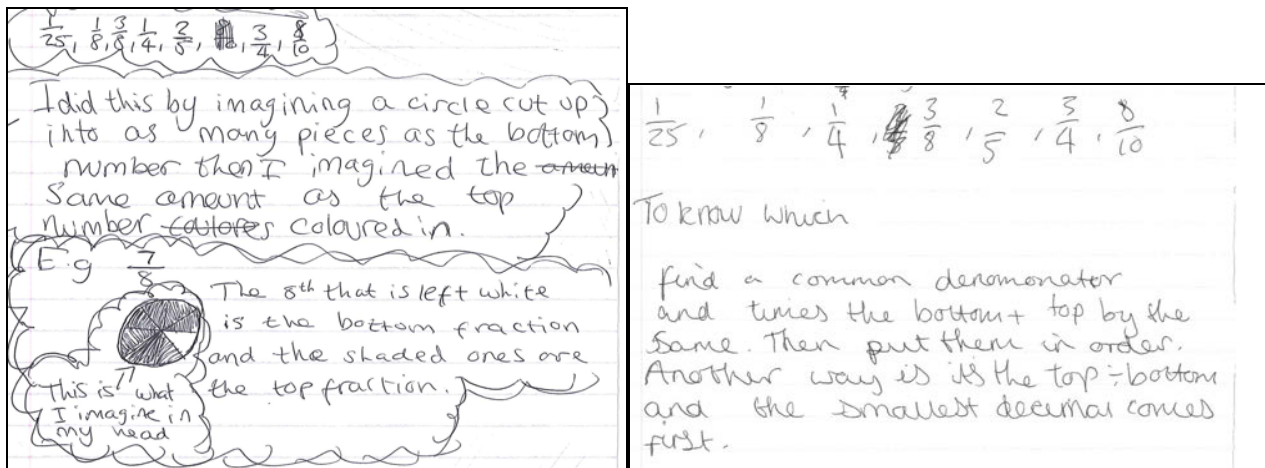 1/25, 1/8, 3/8, 1/4, 2/5, 3/4, 8/10
I did this by imagining a circle cut up
into as many pieces as the bottom
number then I imagined the
Same amount as the top
number coloured in.
E.g 7/8
The 8th that is left white
is the bottom fraction
and the shaded ones are
the top fraction.
This is what
I imagine in
my head
1/25, 1/8, 1/4, 3/8, 2/5, 3/4, 8/10
To know which
find a common denomonator
and times the bottom + top by the
Same. Then put them in order.
Another way is its the top ÷ bottom
and the smallest decimal comes
first.